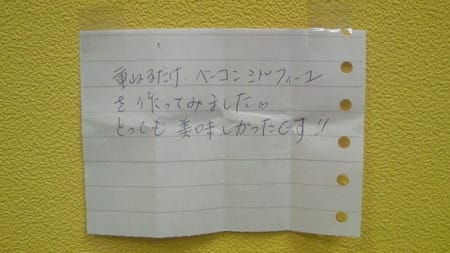 重ねるだけ ベーコンミルフィーユ
を作ってみました☺
とっても美味しかったです!!